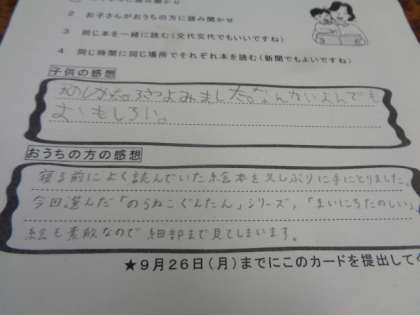 2 お子さんがおうちの方に読み聞かせ
3 同じ本を一緒に読む(交代交代でもいいですね)
4 同じ時間に同じ場所でそれぞれ本を読む(新聞でもよいですね)
子供の感想
よみました。なんかいよんでも
おもしろい。
おうちの方の感想
寝る前によく読んでいた絵本を久しぶりに手にとりました。
今回選んだ「のらねこぐんだん」シリーズ,「まいにちたのしい」
絵も素敵なので細部まで見てしまいます。
★9月26日(月)までにこのカードを提出して